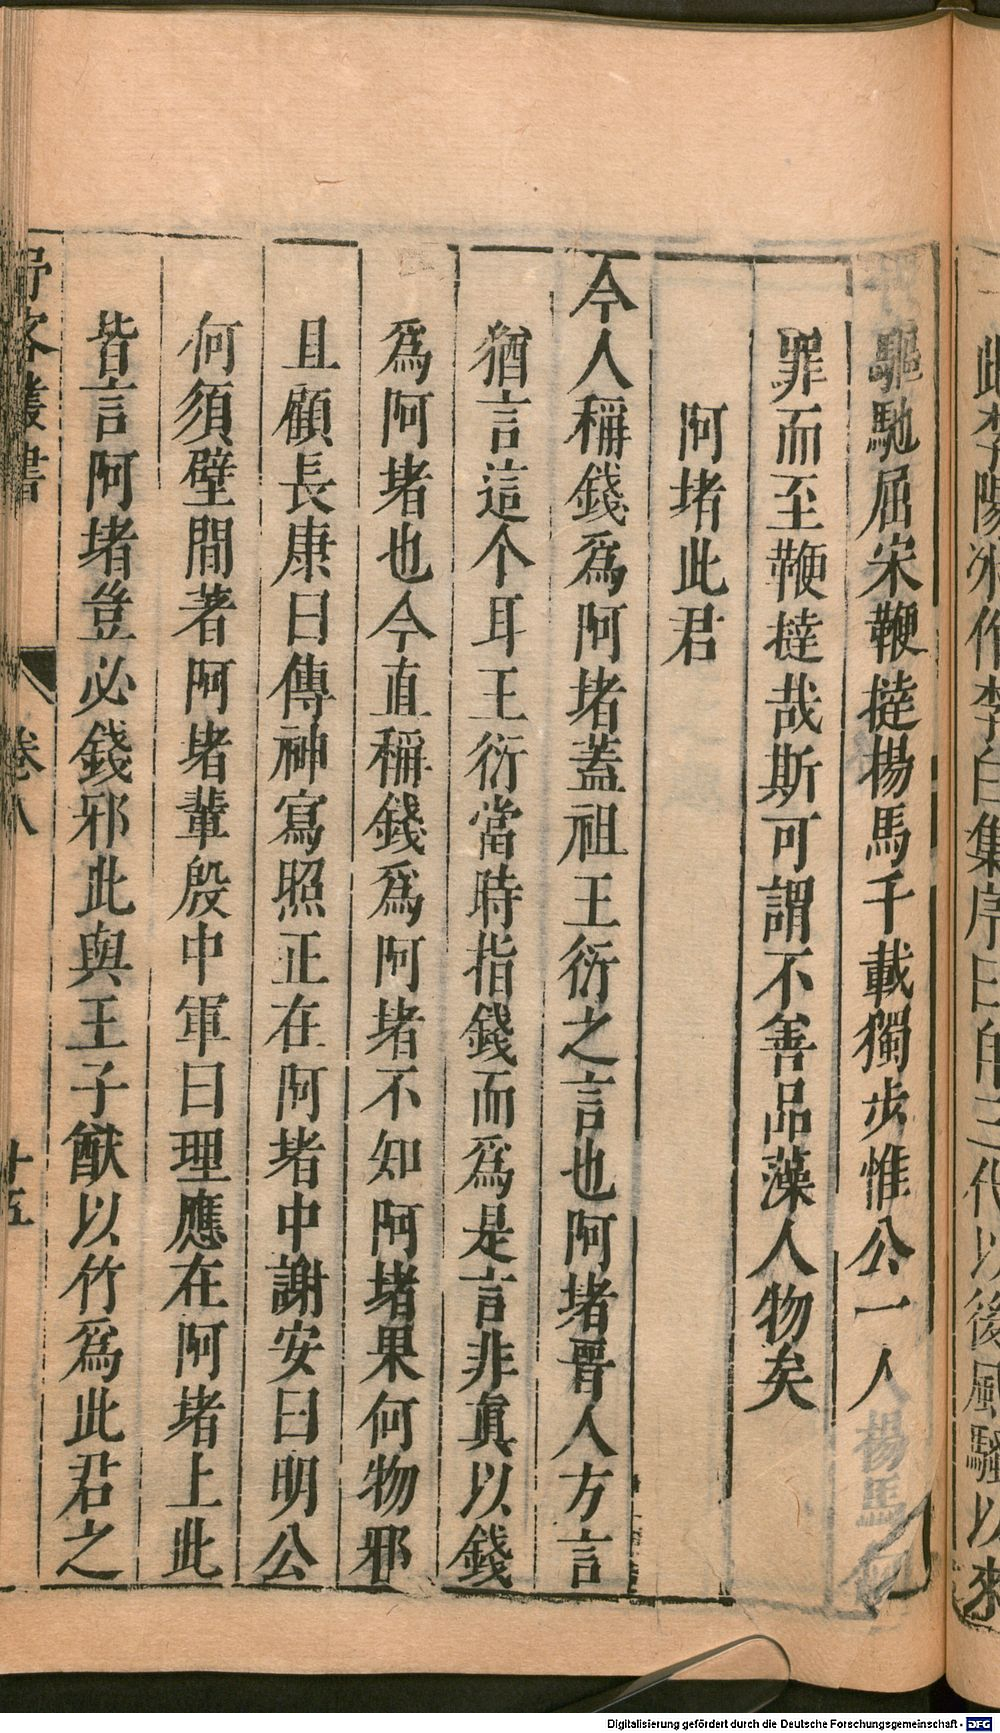 此李陽冰作李白集序曰自三代以後風騷以來
驅馳屈宋鞭撻揚馬千載獨步惟公一人揚馬何
罪而至鞭撻哉斯可謂不善品藻人物矣
阿堵此君
今人稱錢爲阿堵蓋祖王衍之言也阿堵晉人方言
猶言這个耳王衍當時指錢而爲是言非眞以錢
爲阿堵也今直稱錢爲阿堵不知阿堵果何物邪
且顧長康曰傳神寫照正在阿堵中謝安曰明公
何須壁間著阿堵輩殷中軍曰理應在阿堵上此
皆言阿堵豈必錢邪此與王子猷以竹爲此君之
野客叢書 卷八 十五
Digitalisierung gefördert durch die Deutsche Forschungsgemeinschaft - DFG